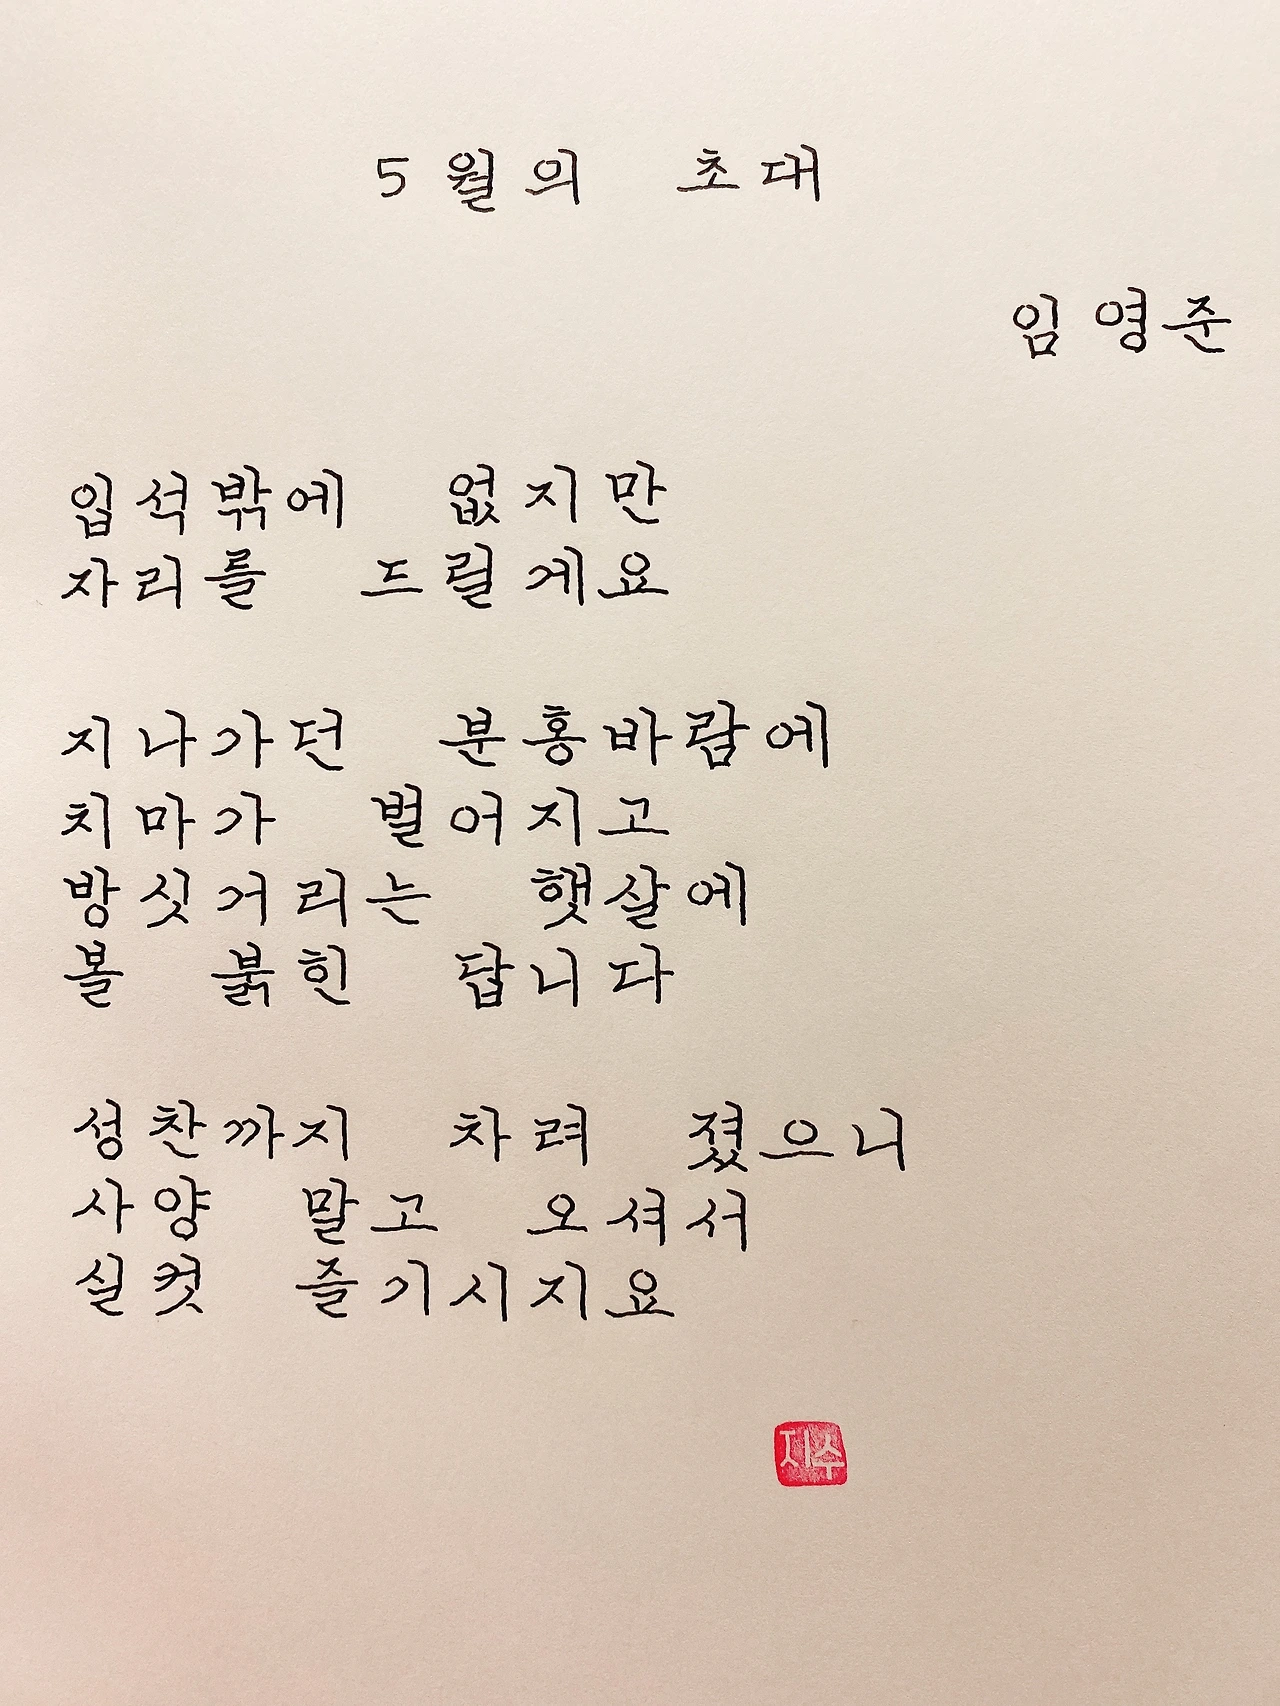 5월의 초대
임영준
입석밖에 없지만
자리를 드릴게요
지나가던 분홍바람에
치마가 벌어지고
방싯거리는 햇살에
볼 붉힌 답니다
성찬까지 차려 졌으니
사양 말고 오셔서
실컷 즐기시지요
지수